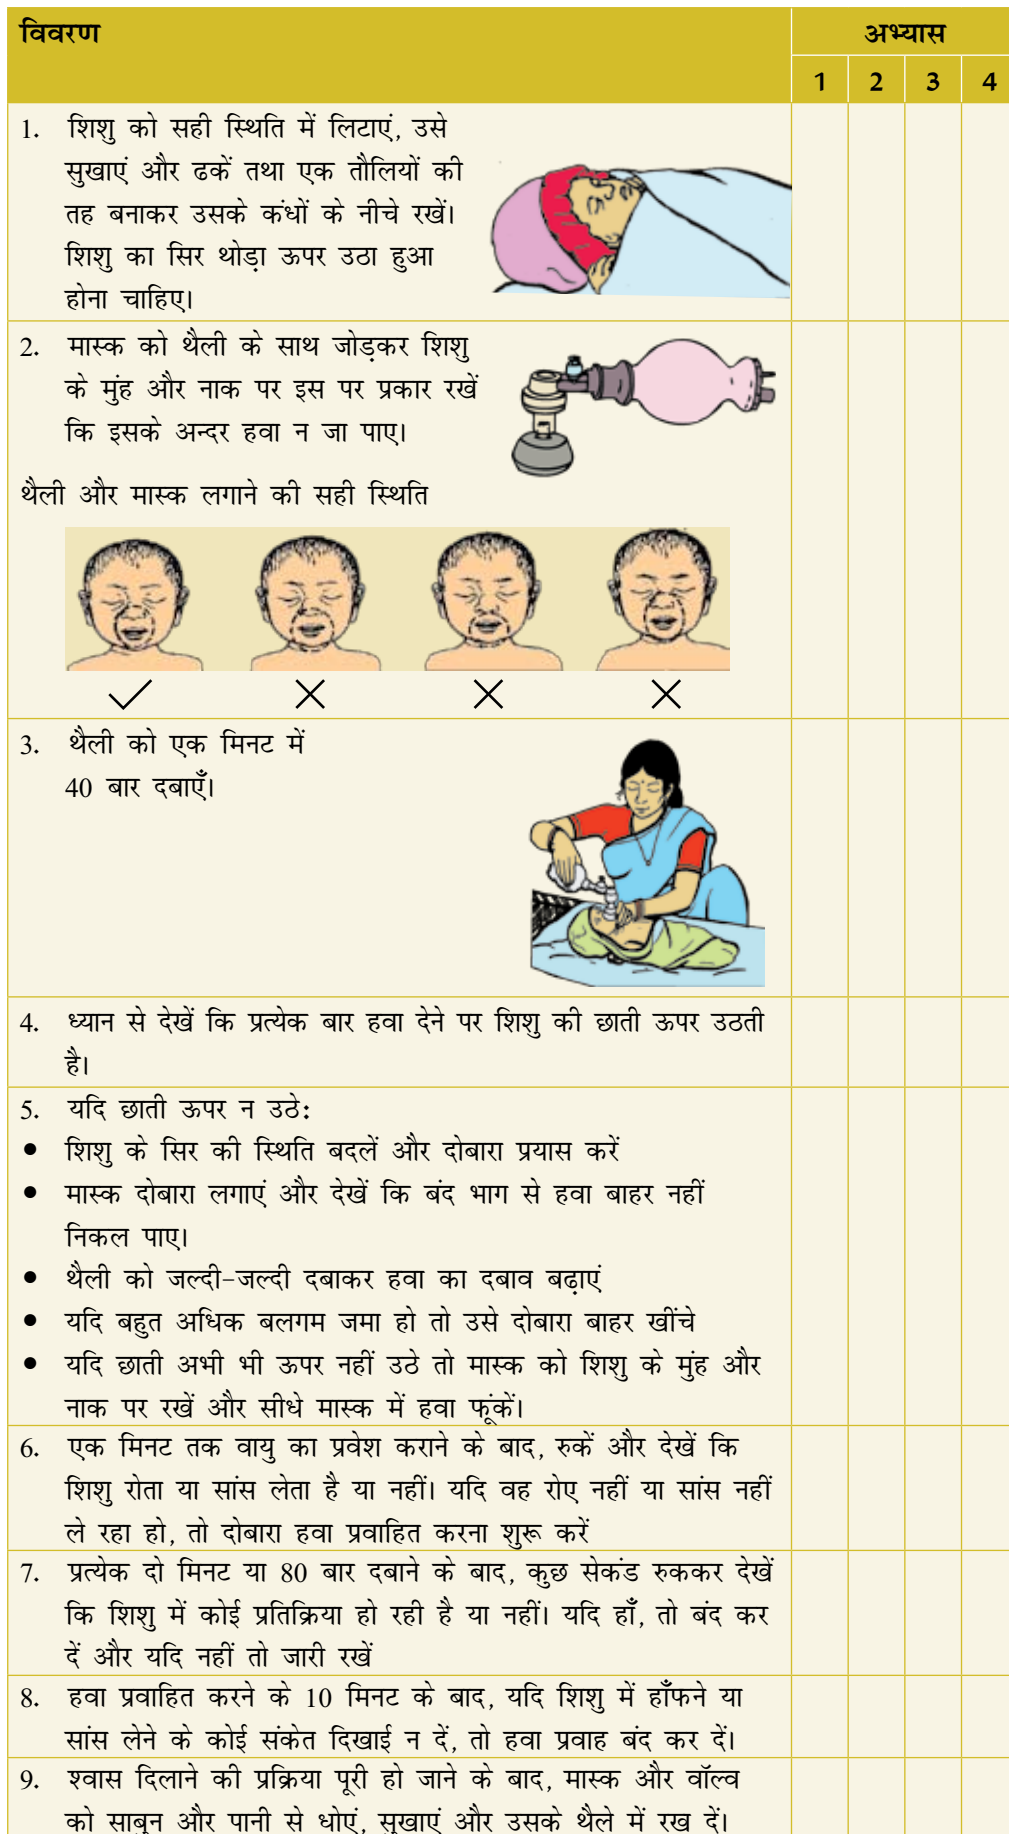 विवरण
अभ्यास
1 2 3 4
1. शिशु को सही स्थिति में लिटाएं, उसे
सुखाएं और ढकें तथा एक तौलियों की
तह बनाकर उसके कंधों के नीचे रखें।
शिशु का सिर थोड़ा ऊपर उठा हुआ
होना चाहिए।
2. मास्क को थैली के साथ जोड़कर शिशु
के मुंह और नाक पर इस पर प्रकार रखें
कि इसके अन्दर हवा न जा पाए।
थैली और मास्क लगाने की सही स्थिति
3. थैली को एक मिनट में
40 बार दबाएँ।
4. ध्यान से देखें कि प्रत्येक बार हवा देने पर शिशु की छाती ऊपर उठती
है।
5. यदि छाती ऊपर न उठे:
● शिशु के सिर की स्थिति बदलें और दोबारा प्रयास करें
● मास्क दोबारा लगाएं और देखें कि बंद भाग से हवा बाहर नहीं
निकल पाए।
● थैली को जल्दी-जल्दी दबाकर हवा का दबाव बढ़ाएं
● यदि बहुत अधिक बलगम जमा हो तो उसे दोबारा बाहर खींचे
● यदि छाती अभी भी ऊपर नहीं उठे तो मास्क को शिशु के मुंह और
नाक पर रखें और सीधे मास्क में हवा फूंकें।
6. एक मिनट तक वायु का प्रवेश कराने के बाद, रुकें और देखें कि
शिशु रोता या सांस लेता है या नहीं। यदि वह रोए नहीं या सांस नहीं
ले रहा हो, तो दोबारा हवा प्रवाहित करना शुरू करें
7. प्रत्येक दो मिनट या 80 बार दबाने के बाद, कुछ सेकंड रुककर देखें
कि शिशु में कोई प्रतिक्रिया हो रही है या नहीं। यदि हाँ, तो बंद कर
दें और यदि नहीं तो जारी रखें
8. हवा प्रवाहित करने के 10 मिनट के बाद, यदि शिशु में हाँफने या
सांस लेने के कोई संकेत दिखाई न दें, तो हवा प्रवाह बंद कर दें।
9. श्वास दिलाने की प्रक्रिया पूरी हो जाने के बाद, मास्क और वॉल्व
को साबुन और पानी से धोएं, सुखाएं और उसके थैले में रख दें।